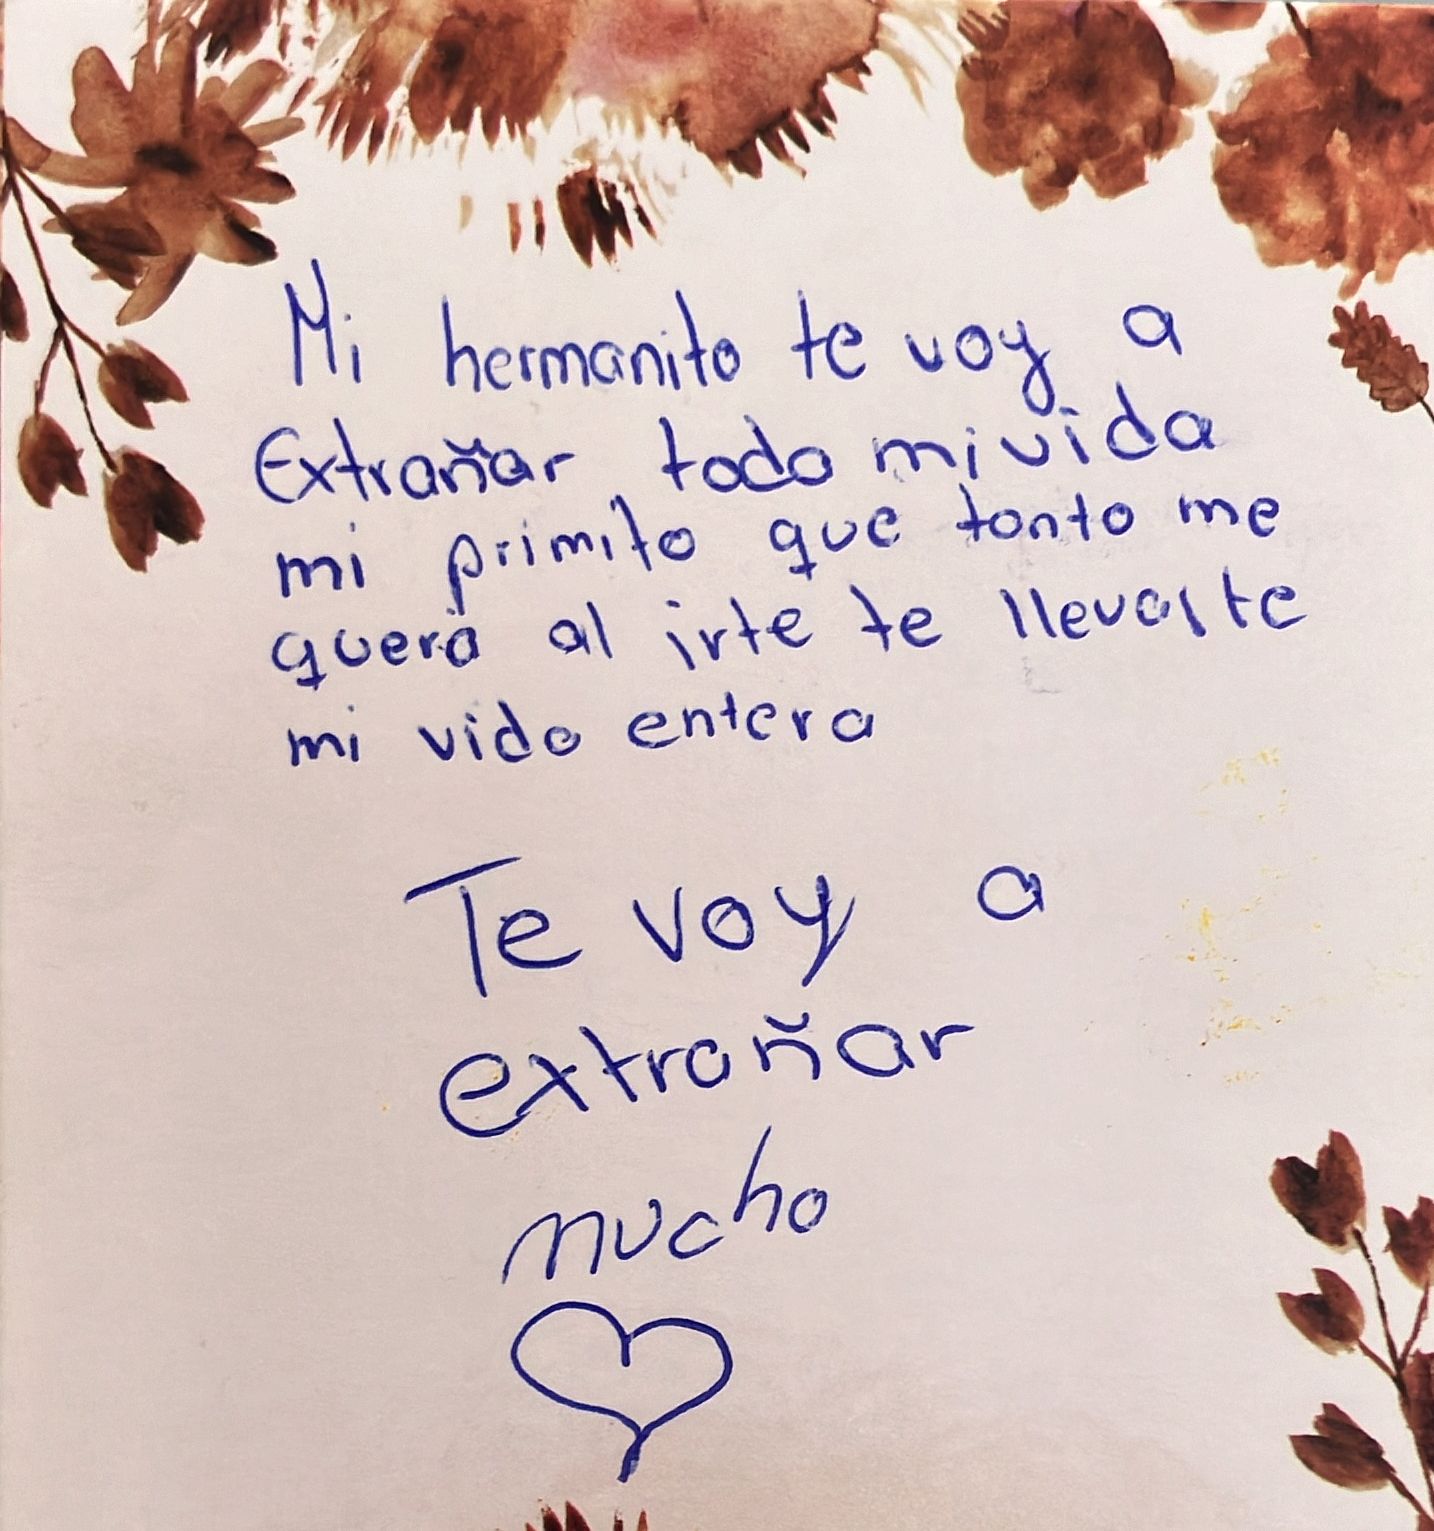 Mi hermanito te voy a
Extrañar toda mi vida
mi primito que tanto me
quera al irte te llevaste
mi vida entera
Te voy a
extrañar
mucho